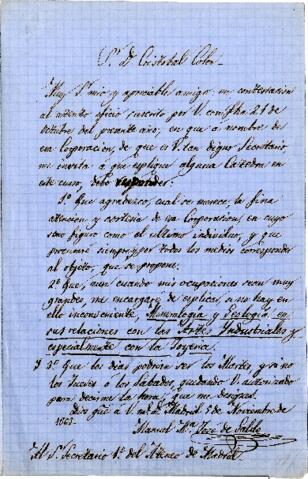 Sr. D. Cristobal Colon
Muy Sr. mio y apreciable amigo, en contestacion
al atento oficio suscrito por V. con fha 21 de
Octubre del presente año, en que á nombre de
esa Corporacion de que es V. tan digno Secretario
me invita á que esplique alguna Catedra en
este curso, debo responder:
1º Que agradezco, cual se merece la fina
atencion y cortesia de esa Corporacion, en cuyo
seno figuro como el ultimo individuo, y que
procuraré siempre, y por todos los medios corresponder
al objeto, que se propone.
2º que, aun cuando mis ocupaciones sean muy
grandes, me encargaré de esplicar, si no hay en
ello inconveniente, Mineralogia y Geologia, en
sus relaciones con las Artes Industriales y
especialmente con la Joyeria.
Y 3º Que los dias podran ser los Martes, y sino
los Jueves ó los Sabados quedando V. autorizado
para decirme la hora, que me designe.
Dios gue á V. ms. as. Madrid 5 de Noviembre de
1863.
Manuel Ma. José de Galdo
Al Sr. Secretario 1º del Ateneo de Madrid